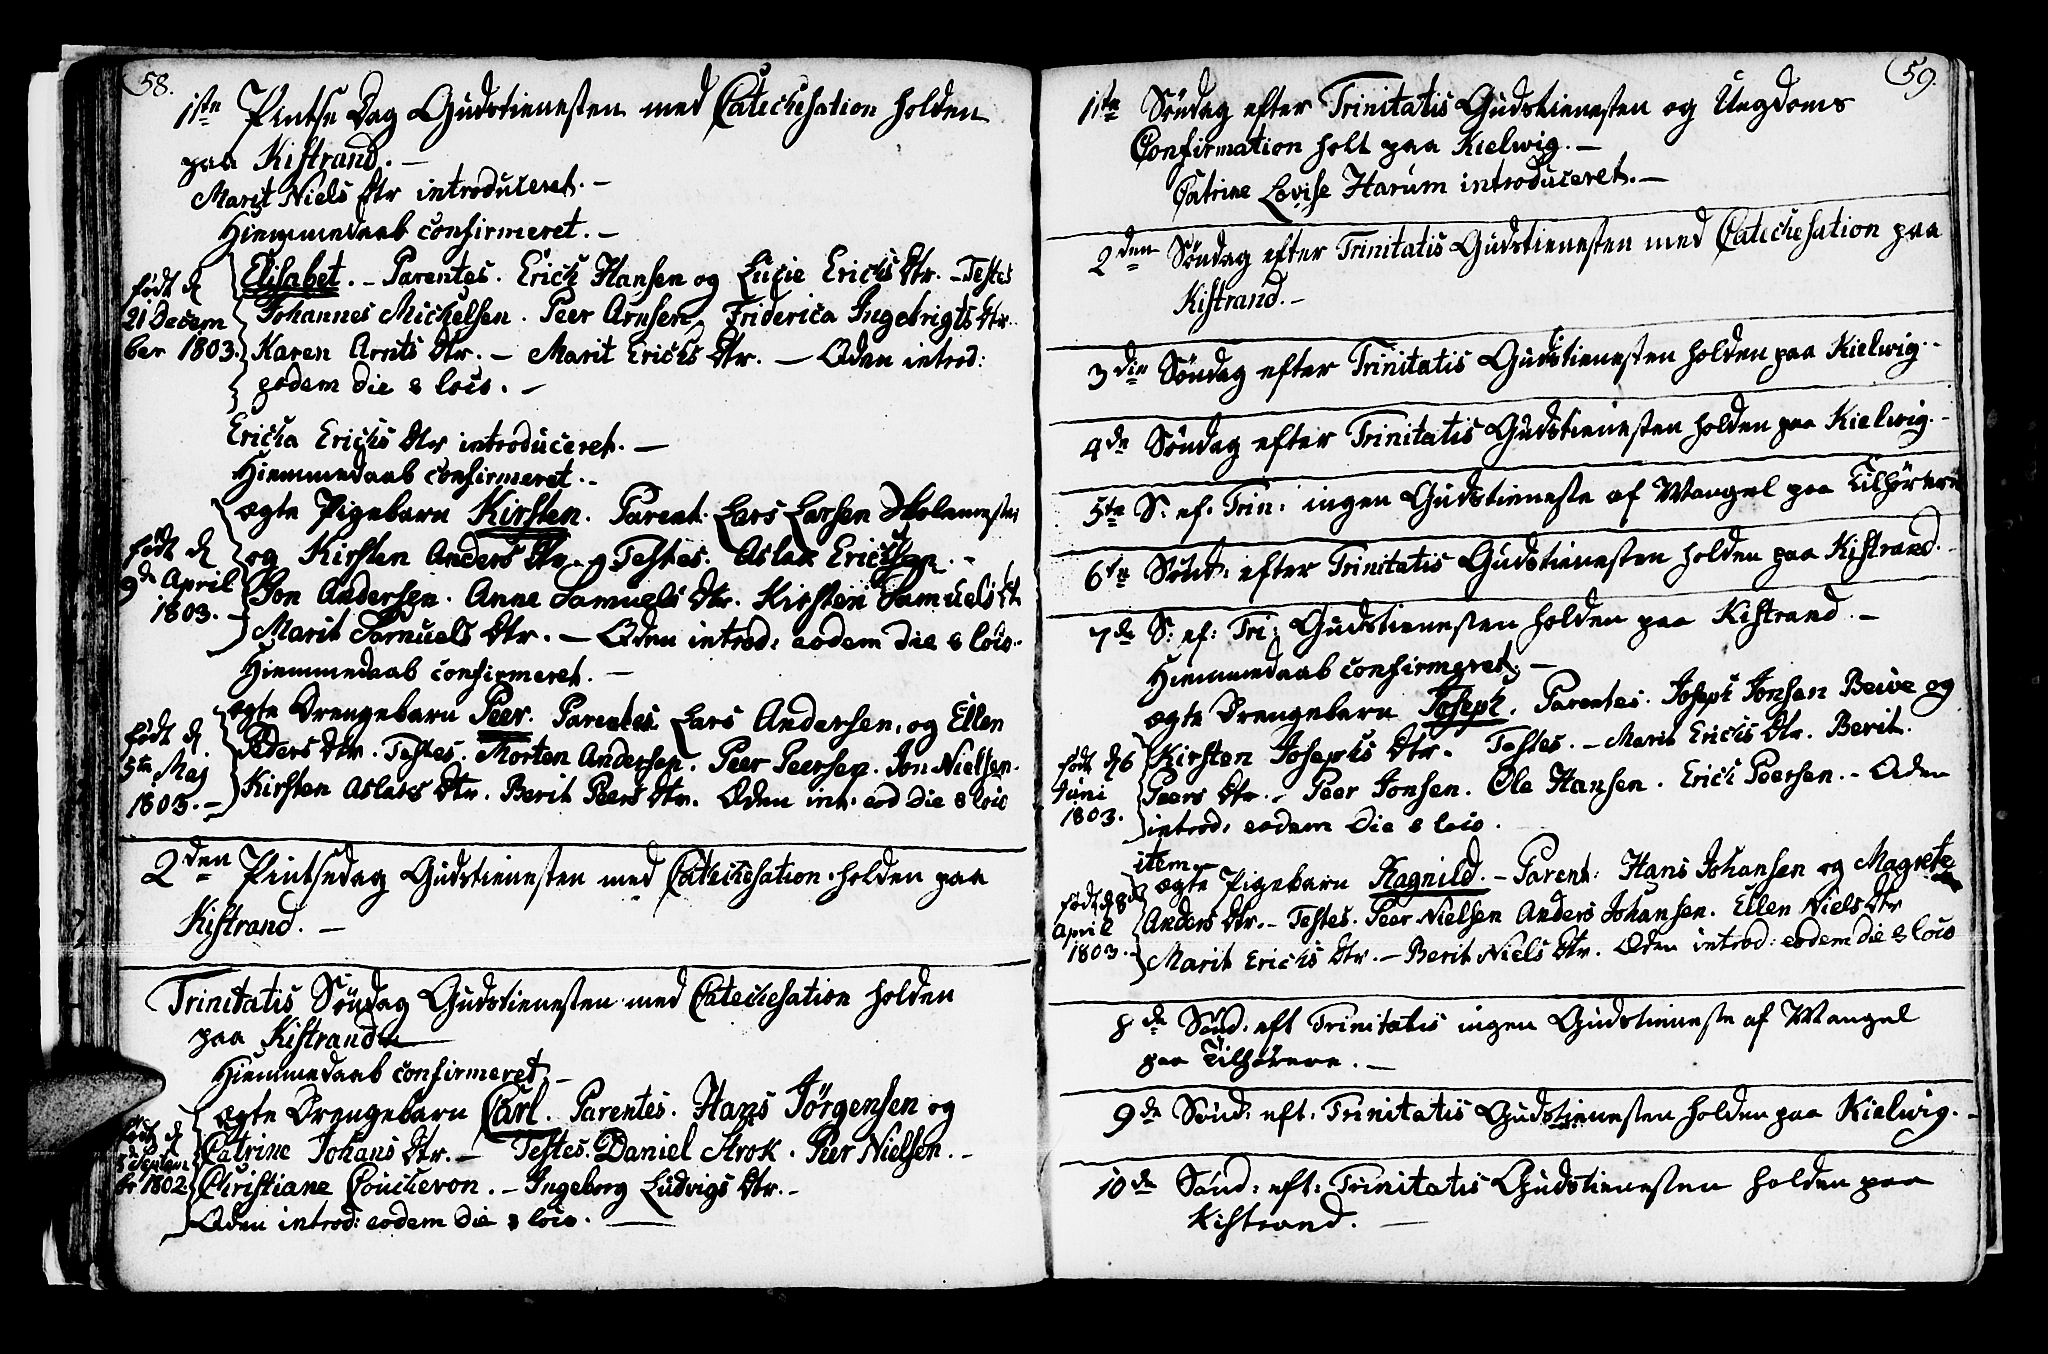 58.
1ste Pintse Dag Gudstienesten med Catechisation holden
paa Kistrand. —
Marit Niels Dtr introduceret. —
Hiemmedaab confirmeret. —
Elisabet. — Parentes. Erich Hansen og Lucie Erichs Dtr. — Testes
født d
21 Decem
ber 1803.
Johannes Michelsen. Peer Arnsen, Friderica Ingebrigts Dtr.
Karen Arnts Dtr. — Marit Erichs Dtr. — Qden introd:
eodem die & loco. —
Ericha Erichs Dtr introduceret. —
Hiemmedaab confirmeret. —
ægte Pigebarn Kirsten. Parent. Lars Larsen Skolemester
født d
9de April
1803. —
og Kirsten Anders Dtr. — Testes. Aslak Erichsen. —
Jon Andersen. Anne Samuels Dtr. Kirsten Samuels Dt.
Marit Samuels Dtr. — Qden introd: eodem die & loco.
Hiemmedaab confirmeret. —
ægte Drengebarn Peer. Parentes. Lars Andersen, og Ellen
født d
5te Maj
1803. —
Peders Dtr. Testes. Morten Andersen. Peer Peersen. Jon Nielsen.
Kirsten Aslaks Dtr. Berit Peers Dtr. Qden int: eod die & loco
2den Pintsedag Gudstienesten med Catechisation holden paa
Kistrand. —
Trinitatis Søndag Gudstienesten med Catechesation holden
paa Kistrand
Hiemmedaab confirmeret. —
ægte Drengebarn Carl. Parentes. Hans Jörgensen og
født d
Septem
br 1802.
Catrine Johans Dtr. — Testes. Daniel Krok. Peer Nielsen. —
Christiane Coucheron. — Ingeborg Ludvigs Dtr. —
Qden introd: eodem die & loco. —
59.
1ste Søndag efter Trinitatis Gudstienesten og Ungdoms
Confirmation holt paa Kielwig. —
Catrine Lovise Harum introduceret. —
2den Søndag efter Trinitatis Gudstienesten med Catechesation paa
Kistrand. —
3die Søndag efter Trinitatis Gudstienesten holden paa Kielwig. —
4de Søndag efter Trinitatis Gudstienesten holden paa Kielwig. —
5te S: ef: Trin: ingen Gudstieneste af Mangel paa Tilhørere
6te Sønd: efter Trinitatis Gudstienesten holden paa Kistrand. —
7de S: ef: Tri: Gudstienesten holden paa Kistrand. —
Hiemmedaab confirmeret. —
ægte Drengebarn Joseph. Parentes. Joseph Jonsen Beive og
født d 6
Juni
1803.
Kirsten Josephs Dtr. Testes. — Marit Erichs Dtr. Berit
Peers Dtr. — Peer Jonsen. Ole Hansen. Erich Peersen. — Qden
introd: eodem die & loco.
item
ægte Pigebarn Ragnild. — Parent: Hans Johansen og Magrete
født d 8de
April
1803. —
Anders Dtr. — Testes. Peer Nielsen Anders Johansen. Ellen Niels Dtr
Marit Erichs Dtr. — Berit Niels Dtr. Qden introd: eodem die & loco
8de Sønd: eft Trinitatis ingen Gudstieneste af Mangel
paa Tilhørere. —
9de Sønd: eft: Trinitatis Gudstienesten holden paa Kielwig. —
10de Sønd: eft: Trinitatis Gudstienesten holden paa
Kistrand. —